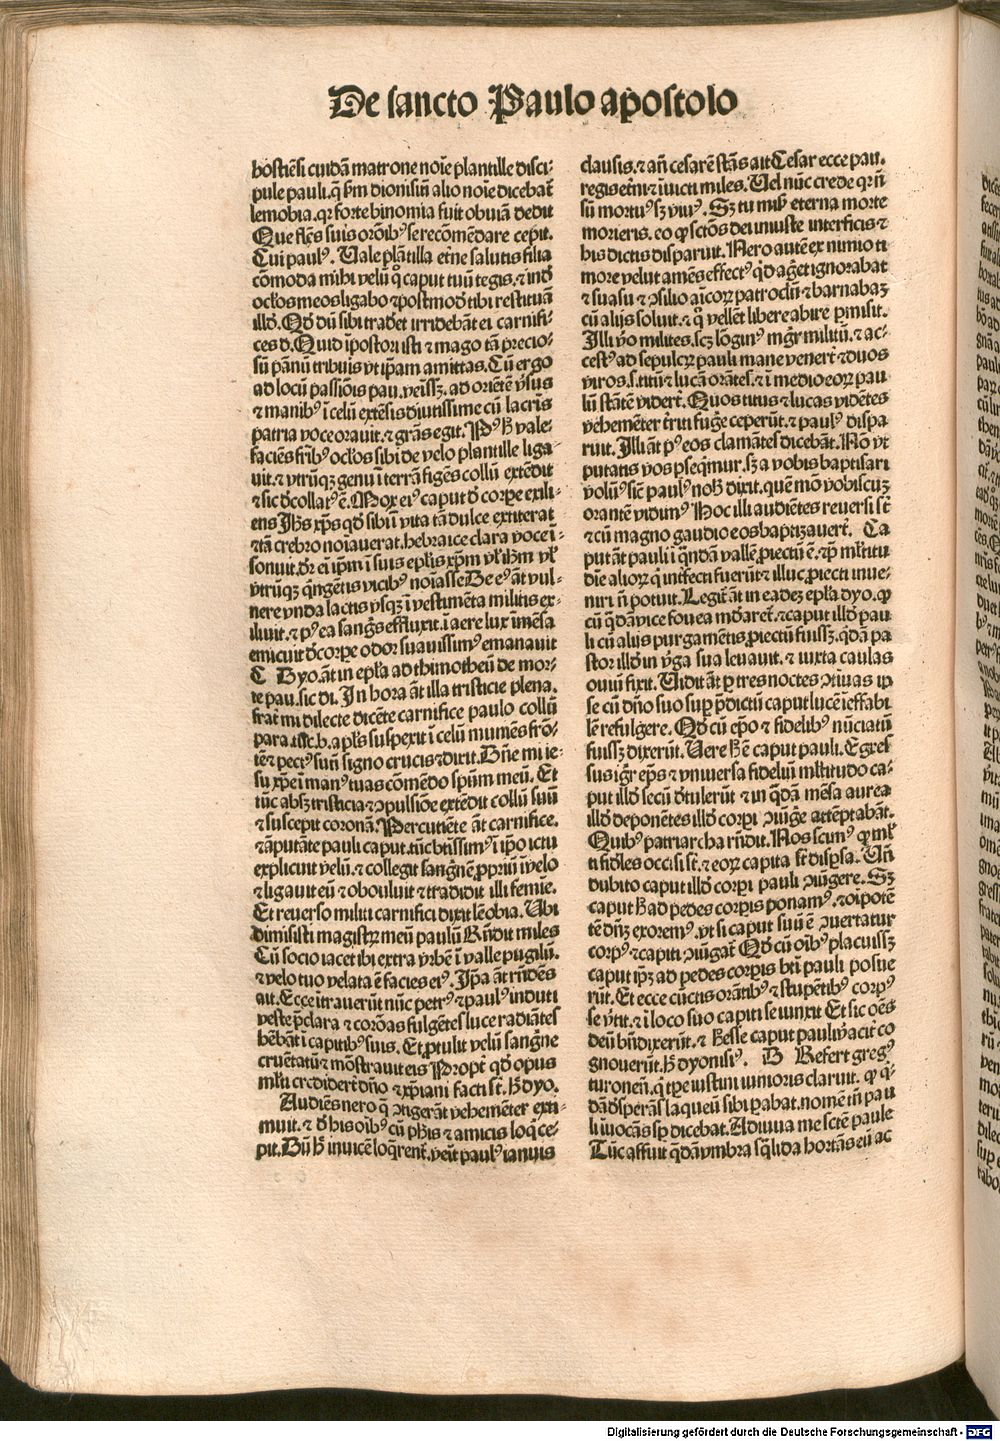 De sancto Paulo apostolo
hostiēsi cuidā matrone noīe plantille disci-
pule pauli. q̄ ẜm dionisiū alio noīe dicebat̄
lemobia. qr forte binomia fuit obuiā dedit
Que flēs suis orōibꝰ se recōmēdare cepit.
Cui paulꝰ. Uale plātilla etne salutis filia
cōmoda mihi velū q̊ caput tuū tegis. ⁊ inđ
ocl'os meos ligabo ⁊ postmođ tibi restituā
illđ. Qđ dū sibi trad'et irridebāt ei carnifi-
ces d. Quid īpostori isti ⁊ mago tā precio-
sū pānū tribuis vt ip̄am amittas. Cū ergo
ad locū passiōis pau. veissꝫ. ad oriētē v̓sus
⁊ manibꝰ ī celū extēsis diutissime cū lacr̄is
patria voce orauit. ⁊ gr̄as egit. Pꝰ h̄ vale-
faciēs fr̄ibꝰ ocl'os sibi de velo plantille liga-
uit. ⁊ vtrūqꝫ genu ī terrā figēs collū extēdit
⁊ sic đcollatꝰ ē. Mox eiꝰ caput đ corpe exili-
ens Ihs xp̄s qđ sibi ī vita tā dulce extiterat
⁊ tā crebro noīauerat. hebraice clara voce ī-
sonuit. dr̄ ei īpm ī suis epl'is xp̄m vl' ihm vl'
vtrūqꝫ q̄ngētis vicibꝰ noīasse De eꝰ āt vul-
nere vnda lactis vsqꝫ ī vestimēta militis ex-
iliuit. ⁊ pꝰ ea sangꝭs effluxit. ī aere lux īmēsa
emicuit đ corpe odor suauissimꝰ emanauit
C Dyo. āt in epl'a ad thimotheū de mor-
te pau. sic di. In hora āt illa tristicie plena.
frat̄ mi dilecte dicēte carnifice paulo collū
para. tūc b. apl's suspexit ī celū muniēs frō-
tē ⁊ pectꝰ suū signo crucis ⁊ dixit. Dn̄e mi ie-
su xp̄e ī manꝰ tuas cōmēdo spm̄ meū. Et
tūc absqꝫ tristicia ⁊ ↄpulsiōe extēdit collū suū
⁊ suscepit coronā. Percutiēte āt carnifice.
⁊ āputāte pauli caput. tūc btissimꝰ ī ip̄o ictu
explicuit velū. ⁊ collegit sangnē ꝓpriū ī velo
⁊ ligauit eū ⁊ obouluit ⁊ tradidit illi femie.
Et reuerso militi carnifici dixit lēobia. Ubi
dimisisti magistꝝ meū paulū Rn̄dit miles
Cū socio iacet ibi extra vrbē ī valle pugilū.
⁊ velo tuo velata ē facies eiꝰ. Ip̄a āt rn̄dēs
ait. Ecce ītrauerūt nūc petrꝰ ⁊ paulꝰ induti
veste p̄clara ⁊ corōas fulgētes luce radiātes
hēbāt ī capitibꝰ suis. Et ꝓtulit velū sangne
cruētatū ⁊ mōstrauit eis Propt̄ qđ opus
ml'ti credidert̄ dn̄o ⁊ xp̄iani facti st̄. h̄ dyo.
Audiēs nero q̄ ↄtigerāt vehemēter exti-
muit. ⁊ đ his oībꝰ cū ph̄is ⁊ amicis loq̄ ce-
pit. Dū h̄ inuicē loq̄rent̄. veīt paulꝰ ianuis
clausis. ⁊ añ cesarē stās ait Cesar ecce pau.
regis et̄ni ⁊ īuicti miles. Uel nūc crede qr ñ
sū mortuꝰ sꝫ viuꝰ. Sꝫ tu misꝭ eterna morte
morieris. eo ꝙ sctōs dei iniuste interficis ⁊
his dictis disparuit. Nero autē ex nimio ti
more velut amēs effectꝰ qđ agꝭet ignorabat
⁊ suasu ⁊ ↄsilio aīcoꝝ patroclū ⁊ barnabaꝫ
cū alijs soluit. ⁊ q̊ vellēt libere abire ꝑmisit.
Illi v̓o milites. scꝫ lōginꝰ mg̓r militū. ⁊ ac-
cestꝰ ad sepulcꝝ pauli mane venert̄ ⁊ duos
viros. s. titū ⁊ lucā orātes. ⁊ ī medio eoꝝ pau
lū stātē vidert̄. Quos titus ⁊ lucas vidētes
vehemēter t̓riti fugꝭe ceperūt. ⁊ paulꝰ dispa
ruit. Illi āt pꝰ eos clamātes dicebāt. Nō vt
putatis vos ꝑseqmur. sꝫ a vobis baptisari
volūꝰ sic̄ paulꝰ nob̄ dixit. quē mō vobiscuꝫ
orantē vidimꝰ Hoc illi audiētes reuersi st̄
⁊ cū magno gaudio eos baptizauert̄. Ca
put āt pauli ī q̄ndā vallē ꝓiectū ē. ⁊ p̄ ml'titu
dīe alioꝝ q̄ int̓fecti fuerūt ⁊ illuc ꝓiecti inue-
niri ñ potuit. Legit̄ āt in eadeꝫ epl'a dyo. ꝙ
cū q̄dā vice fouea mūdaret̄. ⁊ caput illđ pau
li cū alijs purgamētis ꝓiectū fuissꝫ. q̄dā pa
stor illđ in v̓ga sua leuauit. ⁊ iuxta caulas
ouiū fixit. Uidit āt ꝑ tres noctes ↄtinuas ip
se cū dn̄o suo suꝑ p̄dictū caput lucē īeffabi
lē refulgere. Qđ cū epō ⁊ fidelibꝰ nūciatū
fuissꝫ dixerūt. Uere h̄ ē caput pauli. Egres-
sus ig̓r ep̄s ⁊ vniuersa fideliū ml'titudo ca-
put illđ secū đtulerūt ⁊ in q̄dā mēsa aurea
illđ deponētes illđ corpi ↄiūgꝭe attēptabāt.
Quibꝰ patriarcha rn̄dit. Nos scimꝰ ꝙ ml'
ti fidēles occisi st̄. ⁊ eoꝝ capita st̄ dispsa. Uñ
dubito caput illđ corpi pauli ↄiūgere. Sꝫ
caput h̄ ad pedes corpis ponamꝰ. ⁊ oīpotē
tē dn̄ꝫ exoremꝰ. vt si caput suū ē ↄuertatur
corpꝰ ⁊ capiti ↄiūgat̄ Qđ cū oībꝰ placuissꝫ
caput ip̄ꝫ ad pedes corpis bt̄i pauli posue
rūt. Et ecce cūctis orātibꝰ ⁊ stupētibꝰ corpꝰ
se v̓tit. ⁊ ī loco suo capiti se iunxit Et sic oēs
deū bn̄dixerūt. ⁊ h̄ esse caput pauli v̓aciť co
gnouerūt. h̄ dyonisiꝰ. D Refert gregꝰ
turonen̄. q̄ tꝑe iustini iunioris claruit. ꝙ q̄-
dā đsperās laqueū sibi ꝑabat. nomē tn̄ pau
li īuocās sꝑ dicebat. Adiuua me sctē paule
Tūc affuit q̄dā vmbra sq̄lida hortās eū ac
Digitalisierung gefördert durch die Deutsche Forschungsgemeinschaft - DFG